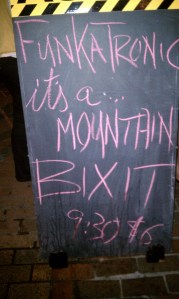 FUNKATRONIC
its a...
MOUNTHIN
BIXIT
9:30 $6